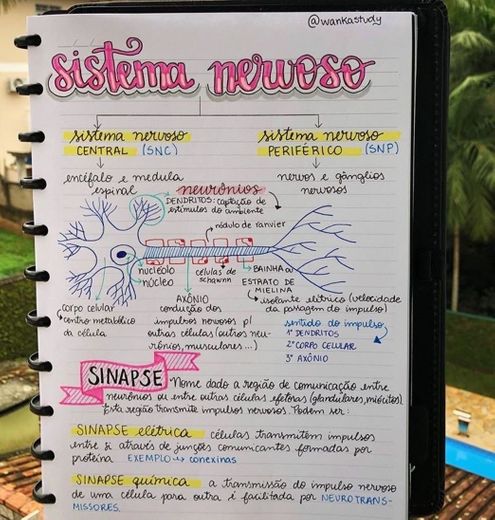 @wankastudy
sistema nervoso
sistema nervoso
CENTRAL (SNC)
sistema nervoso
PERIFÉRICO (SNP)
encéfalo e medula
espinal
nervos e gânglios
nervosos
neurônios
DENDRITOS: captação de
estímulos do ambiente
nódulo de ranvier
nucléolo
núcleo
células de
schwann
BAINHA OU
ESTRATO DE
MIELINA
isolante elétrico (velocidade
da passagem do impulso)
AXÔNIO
condução dos
impulsos nervosos p/
outras células (outros neu-
rônios, musculares...)
corpo celular
centro metabólico
da célula
sentido do impulso
1º DENDRITOS
2º CORPO CELULAR
3º AXÔNIO
SINAPSE
Nome dado a região de comunicação entre
neurônios ou entre outras células efetoras (glandulares, miócitos).
Esta região transmite impulsos nervosos. Podem ser:
SINAPSE elétrica células transmitem impulsos
entre si através de junções comunicantes formadas por
proteína EXEMPLO → conexinas
SINAPSE química a transmissão do impulso nervoso
de uma célula para outra é facilitada por NEUROTRANS-
MISSORES.